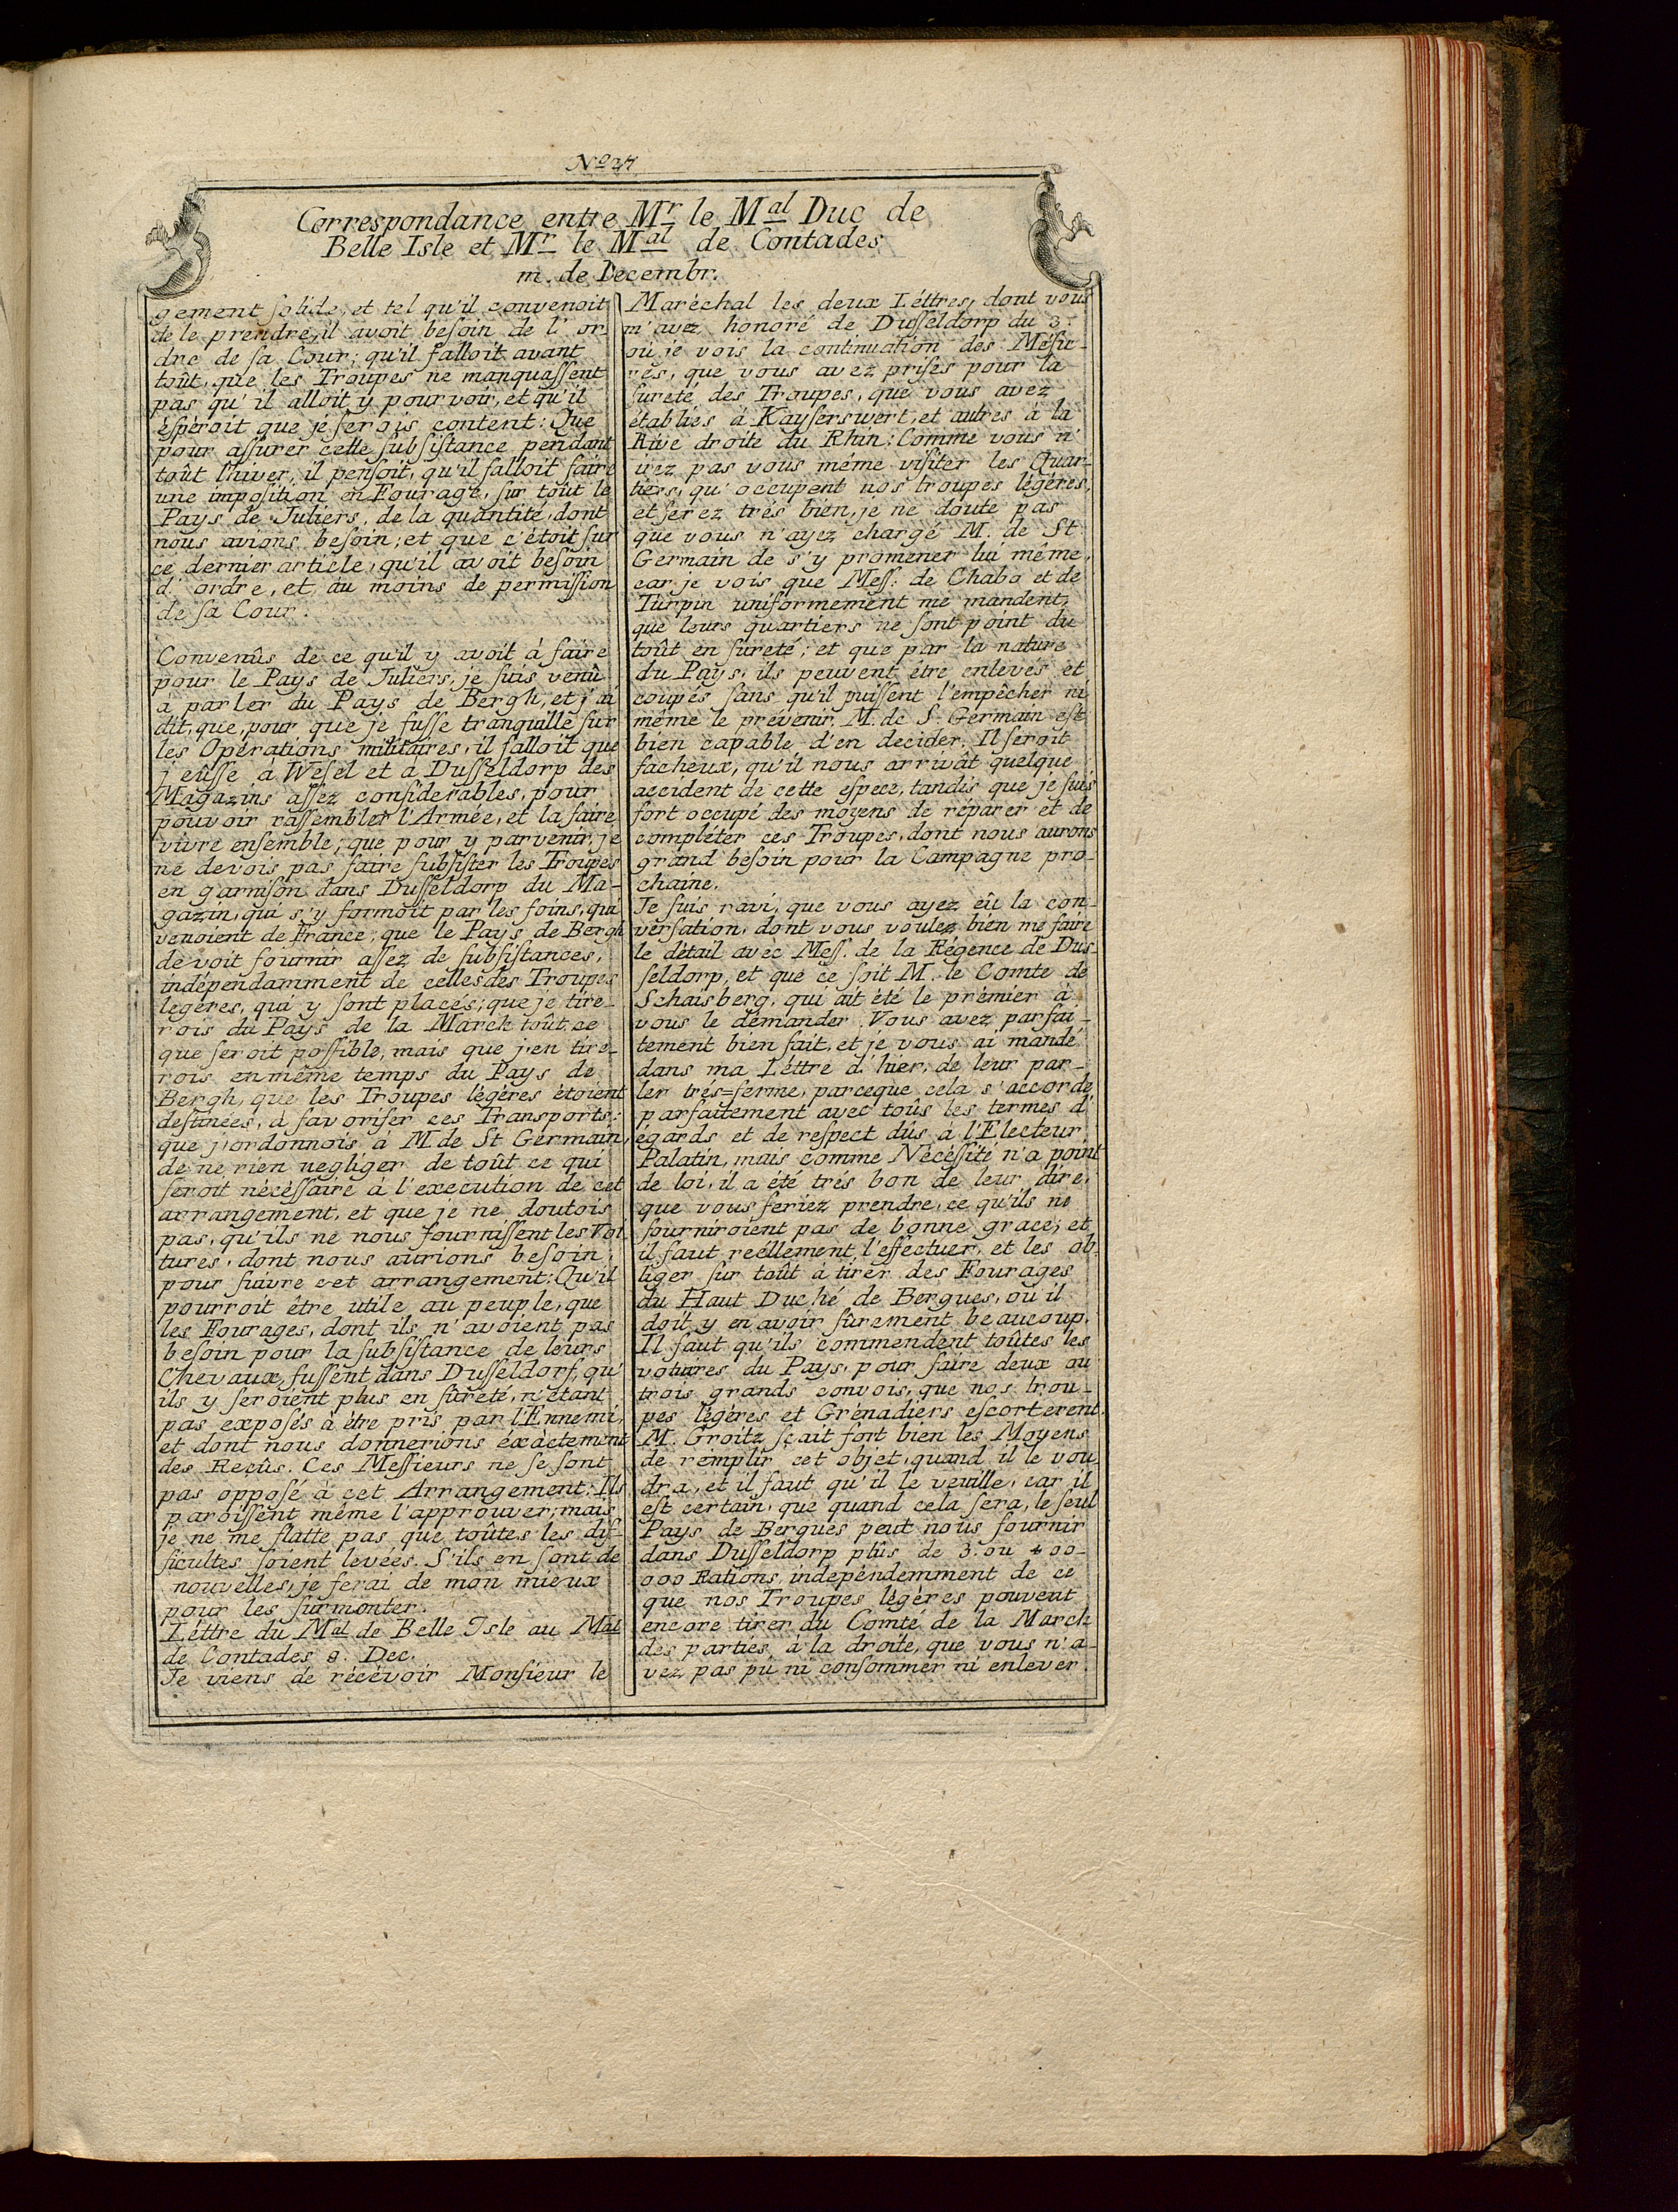 No 37
Correspondance entre Mr le Mal Duc de
Belle Isle et Mr le Mal de Contades
m. de Decembr.
gement ſolide, et tel qu'il convenoit
de le prendre, il avoit beſoin de l'or-
dre de ſa Cour; qu'il falloit avant
toût, que les Troupes ne manquaſſent
pas qu'il alloit y pourvoir, et qu'il
éſpéroit que je ſerois content: Que
pour aſſurer cette ſubſiſtance pendant
toût l'hiver, il penſoit, qu'il falloit faire
une impoſition en Fourage, ſur toût le
Pays de Juliers, de la quantité, dont
nous avions beſoin; et que c'étoit ſur
ce dernier article, qu'il avoit beſoin
d'ordre, et au moins de permiſſion
de ſa Cour.
Convenûs de ce qu'il y avoit à faire
pour le Pays de Juliers, je ſuis venû
à parler du Pays de Bergh, et j'ai
dit, que, pour que je fuſſe tranquille ſur
les Opérations militaires, il falloit que
j'eûſſe à Weſel et à Duſſeldorp des
Magazins aſſez conſiderables, pour
pouvoir raſſembler l'Armée, et la faire
vivre enſemble; que pour y parvenir, je
ne devois pas faire ſubſiſter les Troupes
en garniſon dans Duſſeldorp du Ma-
gazin, qui s'y formoit par les foins, qui
venoient de France; que le Pays de Bergh
devoit fournir aſſez de ſubſiſtances,
indépendamment de celles des Troupes
legéres, qui y ſont placés; que je tire-
rois du Pays de la March toût ce
que ſeroit poſſible, mais que j'en tire-
rois en même temps du Pays de
Bergh, que les Troupes légéres étoient
deſtinées, à favoriſer ces Transports:
que j'ordonnois à M de St Germain,
de ne rien negliger de toût ce qui
ſeroit nécèſſaire à l'execution de cet
arrangement, et que je ne doutois
pas, qu'ils ne nous fourniſſent les Voi
tures, dont nous aurions beſoin,
pour ſuivre cet arrangement: Qu'il
pourroit être utile au peuple, que
les Fourages, dont ils n'avoient pas
beſoin pour la ſubſiſtance de leurs
Chevaux, fuſſent dans Duſſeldorf, qu'
ils y ſeroient plus en ſûreté, n'étant
pas expoſés à être pris par l'Ennemi,
et dont nous donnerions éxàctement
des Reçûs. Ces Meſſieurs ne ſe ſont
pas oppoſé à cet Arrangement: Ils
paroiſſent même l'approuver; mais
je ne me flatte pas que toûtes les dif-
ficultes ſoient levées. S'ils en ſont de
nouvelles, je ferai de mon mieux
pour les ſurmonter.
Léttre du Mal de Belle Isle au Mal
de Contades 8. Dec.
Je viens de récévoir Monſieur le
Maréchal les deux Léttres, dont vous
m'avez honoré de Duſſeldorp du 3.
où je vois la continuation des Meſu-
res, que vous avez priſes pour la
ſureté des Troupes, que vous avez
établies á Kayſerswert, et autres à la
Rive droite du Rhin: Comme vous n'
irez pas vous même viſiter les Quar-
tiers, qu'occupent nos troupes légéres,
et ferez trés bien, je ne doute pas
que vous n'ayez chargé M. de St
Germain de s'y promener lui même,
car je vois que Meſſ. de Chabo et de
Turpin uniformement me mandent,
que leurs quartiers ne ſont point du
toût en ſureté; et que par la nature
du Pays, ils peuvent être enlevés et
coupés ſans qu'il puiſſent l'empêcher ni
même le prévenir. M. de S. Germain eſt
bien capable d'en decider. Il ſeroit
facheux, qu'il nous arrivât quelque
accident de cette eſpece, tandis que je ſuis
fort occupé des moyens de réparer et de
compléter ces Troupes, dont nous aurons
grand beſoin pour la Campagne pro-
chaine.
Je ſuis ravi, que vous ayez eû la con-
verſation, dont vous voulez bien me faire
le détail avèc Meſſ. de la Régence de Dus-
ſeldorp, et que ce ſoit M. le Comte de
Schaisberg, qui ait été le prémier à
vous le démander. Vous avez parfai-
tement bien fait, et je vous ai mandé
dans ma Léttre d'hier, de leur par-
ler trés=ferme, parceque cela s'accorde
parfaitement avec toûs les termes d'
égards et de reſpect dûs à l'Electeur
Palatin, mais comme Nécéſſité n'a point
de loi, il a été trés bon de leur dire,
que vous feriez prendre, ce qu'ils ne
fourniroient pas de bonne grace; et
il faut reéllement l'effectuer, et les ob-
liger ſur toût à tirer des Fourages
du Haut Duché de Bergues, où il
doit y en avoir ſûrement beaucoup.
Il faut qu'ils commendent toûtes les
voitures du Pays, pour faire deux au
trois grands convois, que nos trou-
pes légéres et Grénadiers eſcorterent.
M. Groitz ſçait fort bien les Moyens
de remplir cet objet, quand il le vou
dra, et il faut qu'il le veuille, car il
eſt certain, que quand cela ſera, le ſeul
Pays de Bergues peut nous fournir
dans Duſſeldorp plûs de 3. ou 400-
000 Rations, independemment de ce
que nos Troupes légéres pouvent
encore tirer du Comté de la March
des parties, à la droite, que vous n'a-
vez pas pû ni conſommer ni enlever.